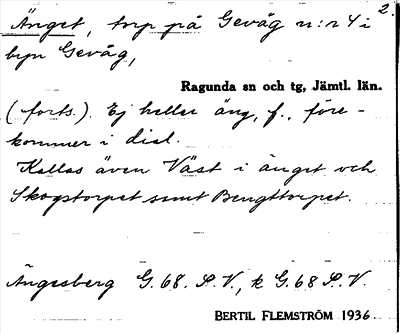 2.
Änget, torp på Gevåg n:r 4 i
byn Gevåg,
Ragunda sn och tg, Jämtl. län.
(forts.). Ej heller äng, f., före-
kommer i dial.
Kallas även Väst i änget och
Skogstorpet samt Bengttorpet.
Ängesberg G. 68. S. V., k G. 68 S. V.
BERTIL FLEMSTRÖM 1936.